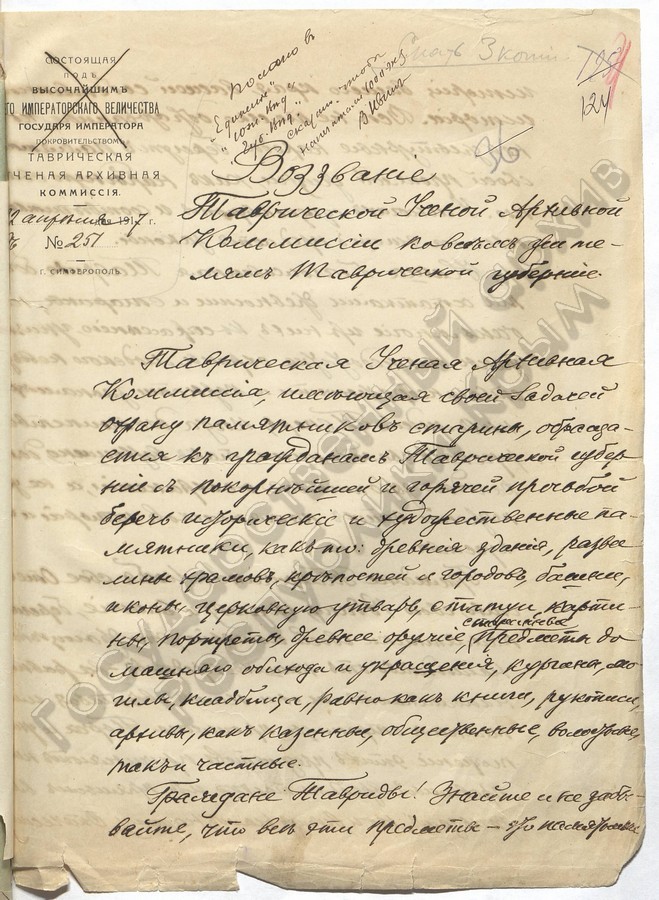 СОСТОЯЩАЯ
ПОДЪ
ВЫСОЧАЙШИМЪ
ГО ИМПЕРАТОРСКАГО ВЕЛИЧЕСТВА
ГОСУДАРЯ ИМПЕРАТОРА
ПОКРОВИТЕЛЬСТВОМЪ
ТАВРИЧЕСКАЯ
ЧЕНАЯ АРХИВНАЯ
КОММИССІЯ.
апрѣля 1917 г.
№ 251
Г. СИМФЕРОПОЛЬ.
Снять 3 копіи
124
36
Воззваніе
Таврической Ученой Архивной
Коммиссіи ко всѣмъ жите-
лямъ Таврической губерніи.
Таврическая Ученая Архивная
Коммиссія, имѣющая своей задачей
охрану памятниковъ старины, обраща-
ется къ гражданамъ Таврической губер-
ніи съ покорнѣйшей и горячей просьбой
беречь историческіе и художественные па-
мятники, какъ то: древнія зданія, разва-
лины храмовъ, крѣпостей и городовъ, башни,
иконы, церковную утварь, статуи, карти-
ны, портреты, древнее оружіе, старинные предметы до
машняго обихода и украшенія, курганы, мо-
гилы, кладбища, равно какъ книги, рукописи,
архивы, какъ казенные, общественные, волостные,
такъ и частные.
Граждане Тавриды! Знайте и не забы-
вайте, что всѣ эти предметы – это памятники
ГОСУДАРСТВЕННЫЙ АРХИВ
РЕСПУБЛИКИ КРЫМ